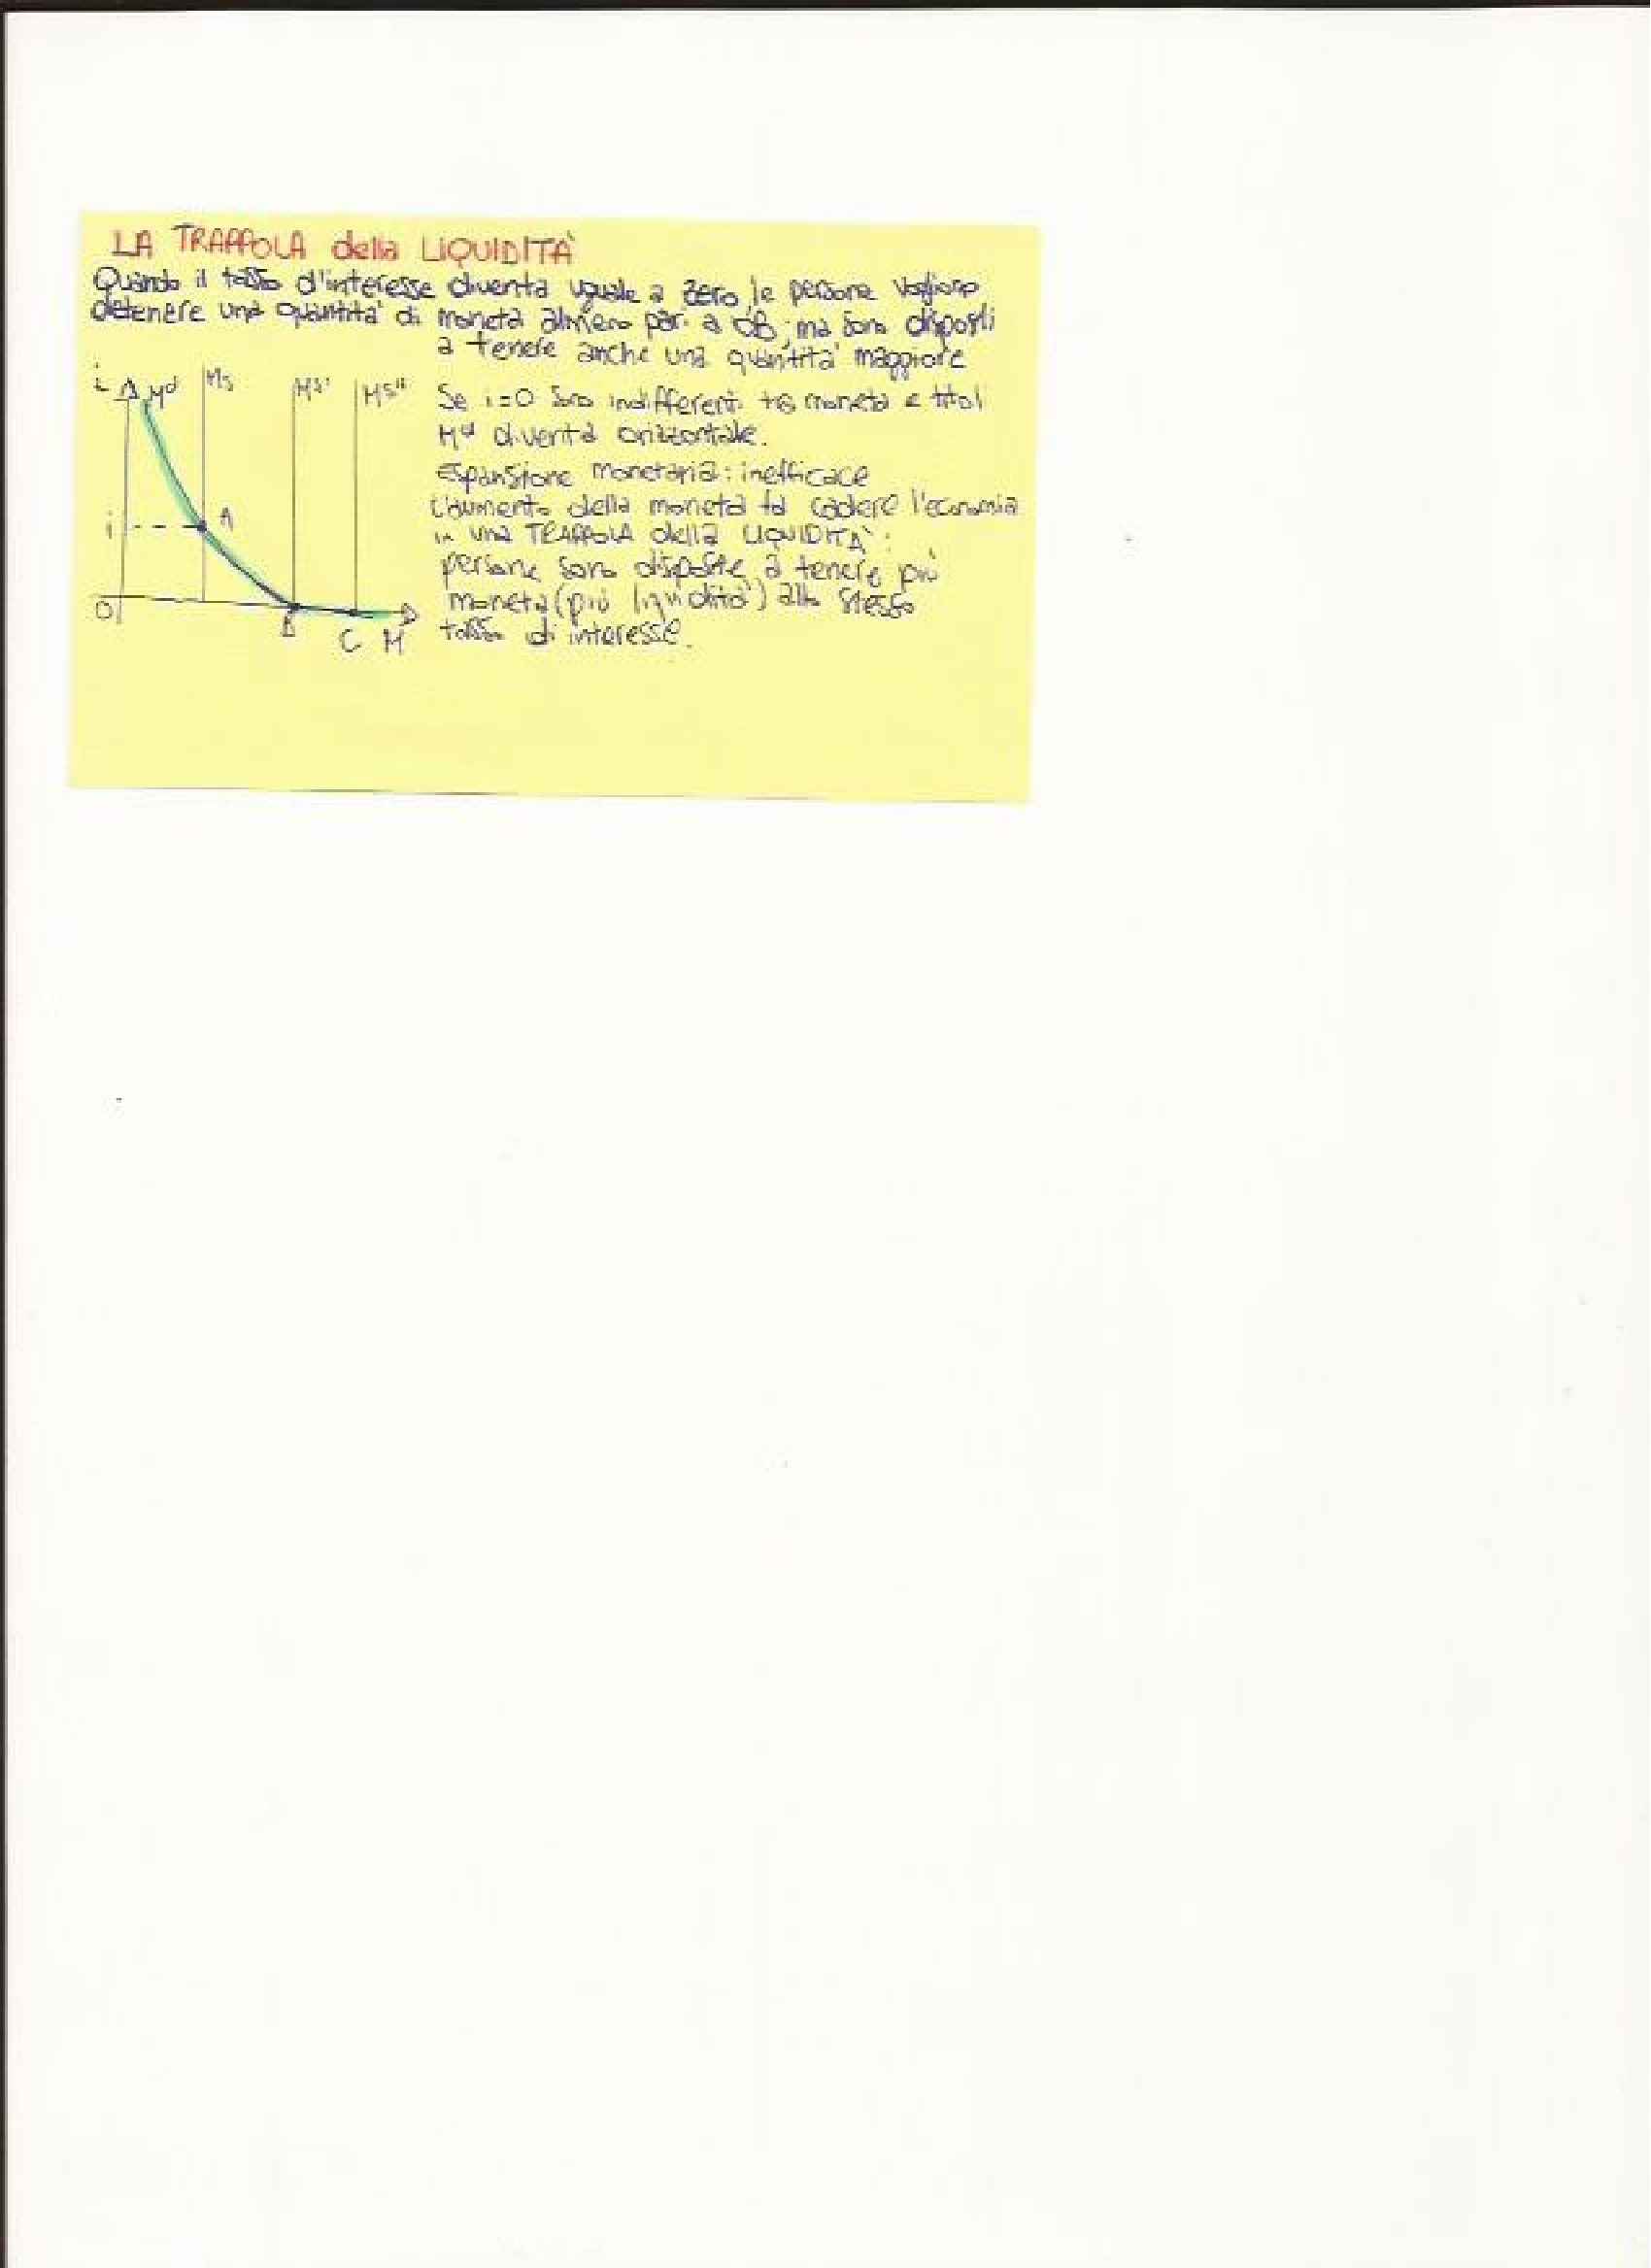 LA TRAPPOLA della LIQUIDITÀ
Quando il tasso d'interesse diventa uguale a zero, le persone vogliono
detenere una quantità di moneta almeno pari a OB; ma sono disposti
a tenere anche una quantità maggiore
i Md Ms Ms' Ms"
Se i=0 sono indifferenti tra moneta e titoli
Md diventa orizzontale.
Espansione monetaria: inefficace
L'aumento della moneta fa cadere l'economia
i A
in una TRAPPOLA della LIQUIDITÀ:
persone sono disposte a tenere più
moneta (più liquidità) allo stesso
tasso di interesse.
O B C M